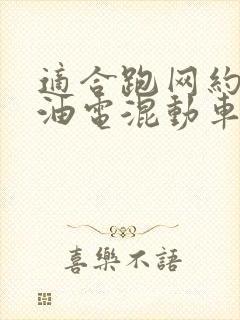 適合跑网約
油電混動車
喜樂不語